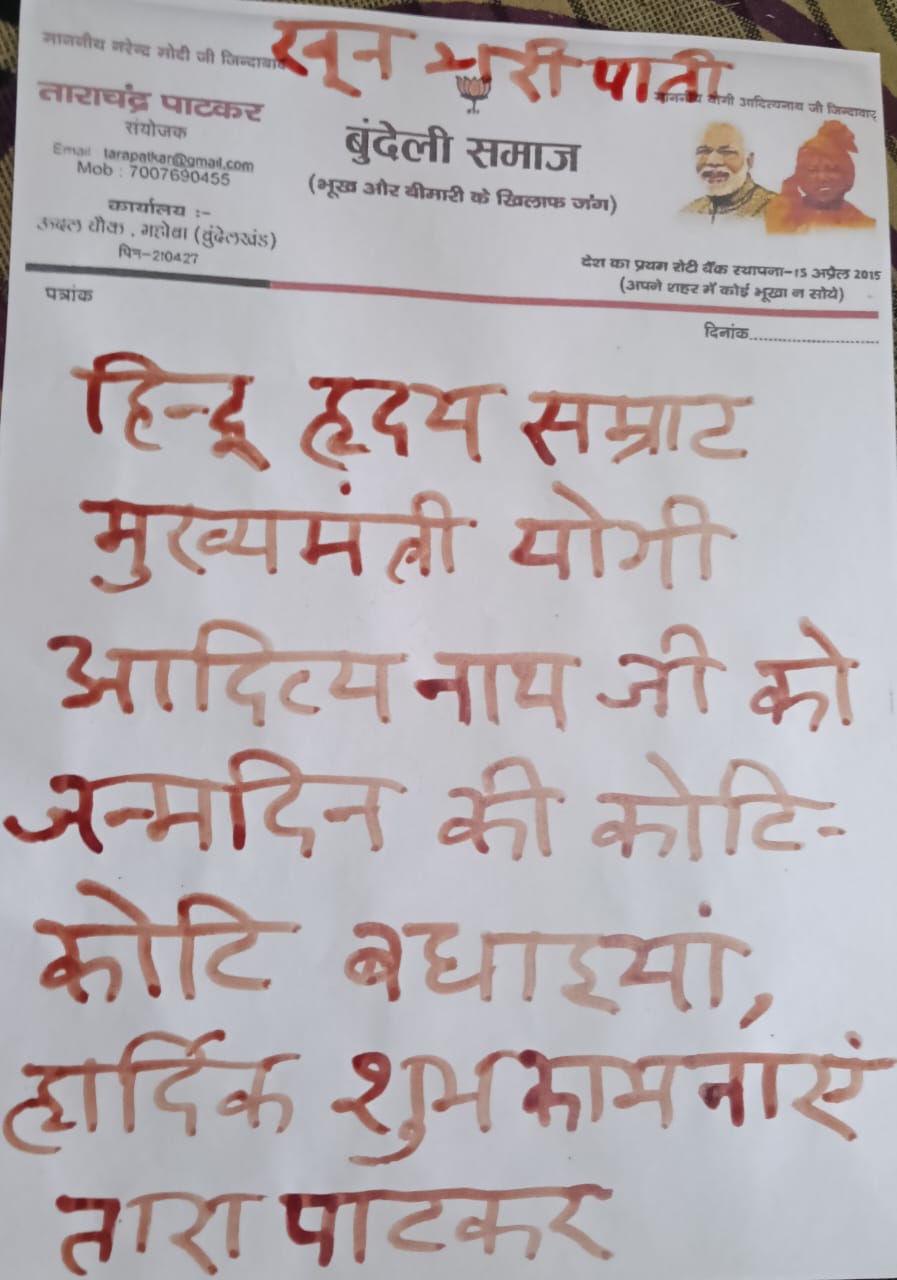 खून भरी पाती
माननीय नरेन्द्र मोदी जी जिन्दाबाद
माननीय योगी आदित्यनाथ जी जिन्दाबाद
ताराचंद्र पाटकर
संयोजक
Email tarapatkar@gmail.com
Mob : 7007690455
कार्यालय :-
ऊदल चौक, महोबा (बुंदेलखंड)
पिन-210427
बुंदेली समाज
(भूख और बीमारी के खिलाफ जंग)
देश का प्रथम रोटी बैंक स्थापना-15 अप्रैल 2015
(अपने शहर में कोई भूखा न सोये)
पत्रांक
दिनांक..........................
हिन्दू हृदय सम्राट
मुख्यमंत्री योगी
आदित्य नाथ जी को
जन्मदिन की कोटि-
कोटि बधाइयां,
हार्दिक शुभकामनाएं
तारा पाटकर